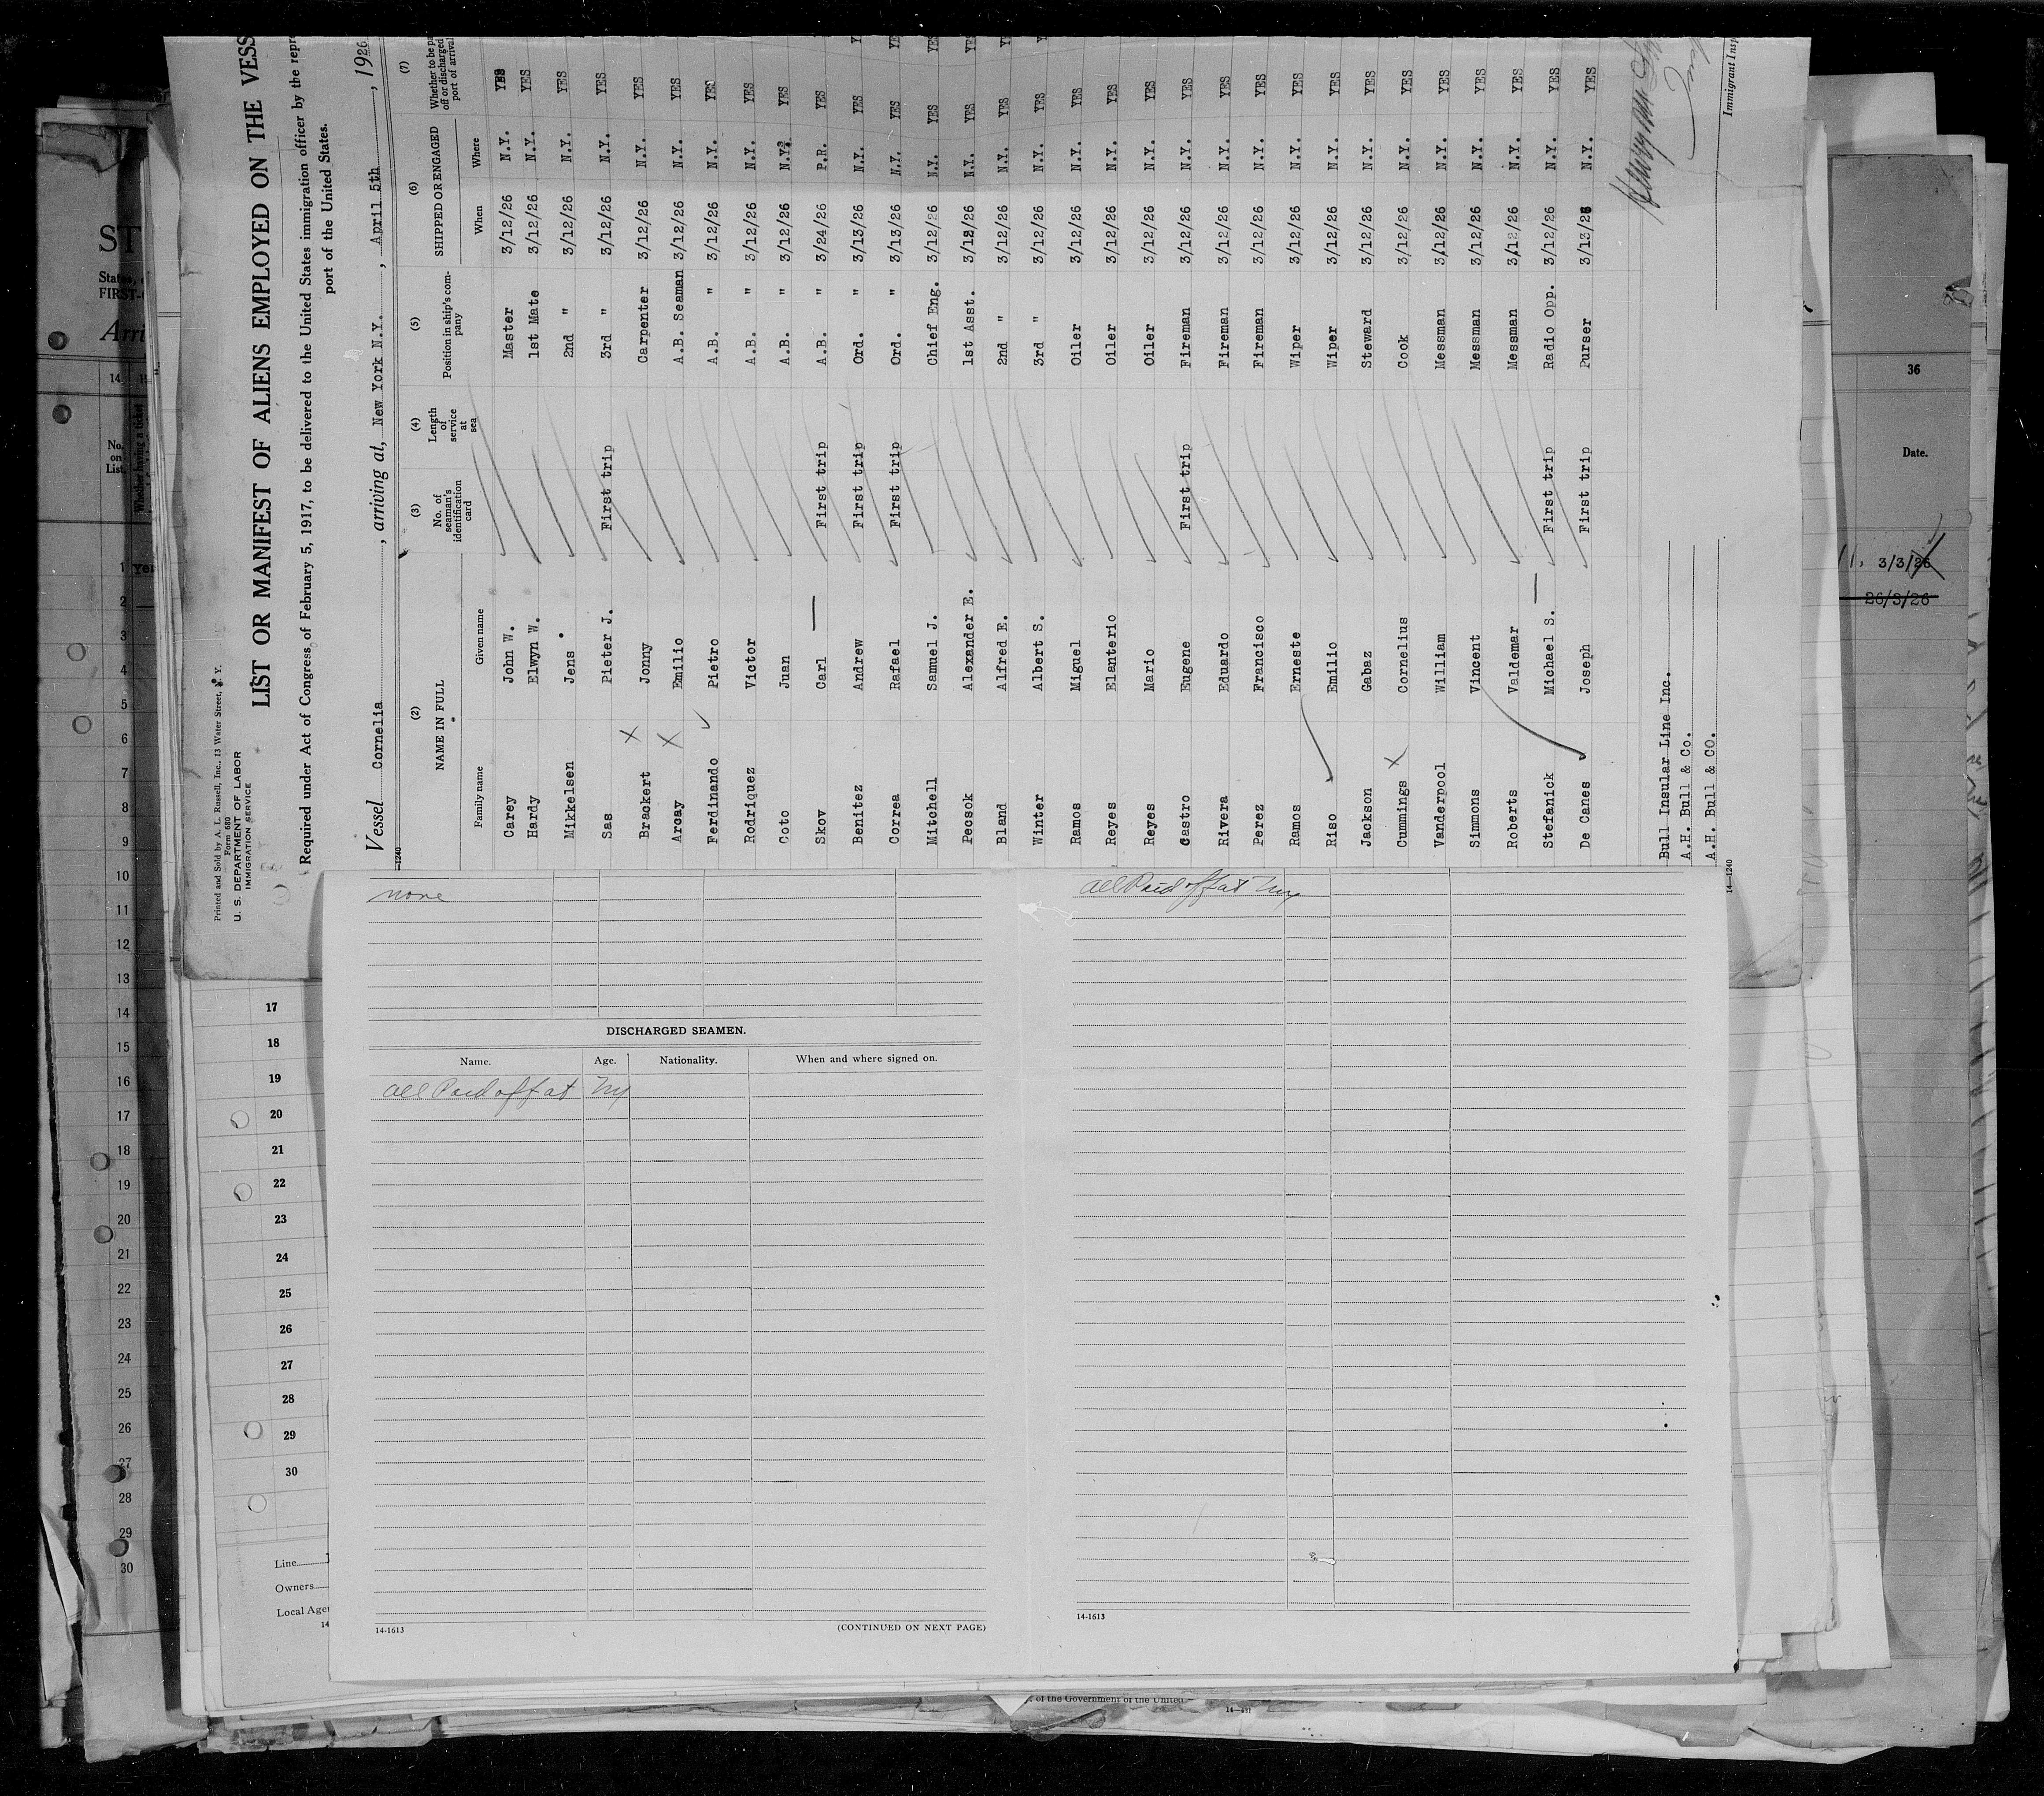 Printed and Sold by A. L. Russell, Inc., 13 Water Street, N. Y.
Form 680
U. S. DEPARTMENT OF LABOR
IMMIGRATION SERVICE
LIST OR MANIFEST OF ALIENS EMPLOYED ON THE VESS
Required under Act of Congress of February 5, 1917, to be delivered to the United States immigration officer by the repr
port of the United States.
Vessel Cornelia, arriving at, New York N.Y., April 5th, 1926
(2) (3) (4) (5) (6) (7)
NAME IN FULL
Family name Given name
No. of seaman's identification card
Length of service at sea
Position in ship's company
SHIPPED OR ENGAGED
When Where
Whether to be pa
off or discharged
port of arrival
Carey John W. Master 3/12/26 N.Y. YES
Hardy Elwyn W. 1st Mate 3/12/26 N.Y. YES
Mikkelsen Jens 2nd " 3/12/26 N.Y. YES
Sas Pieter J. First trip 3rd " 3/12/26 N.Y. YES
Brackert Jonny Carpenter 3/12/26 N.Y. YES
Arcay Emilio A.B. Seaman 3/12/26 N.Y. YES
Ferdinando Pietro A.B. " 3/12/26 N.Y. YES
Rodriquez Victor A.B. " 3/12/26 N.Y. YES
Coto Juan A.B. " 3/12/26 N.Y. YES
Skov Carl First trip A.B. " 3/24/26 P.R. YES
Benitez Andrew First trip Ord. " 3/13/26 N.Y. YES
Correa Rafael First trip Ord. " 3/13/26 N.Y. YES
Mitchell Samuel J. Chief Eng. 3/12/26 N.Y. YES
Pecsok Alexander E. 1st Asst. 3/12/26 N.Y. YES
Bland Alfred E. 2nd " 3/12/26 N.Y. YES
Winter Albert S. 3rd " 3/12/26 N.Y. YES
Ramos Miguel Oiler 3/12/26 N.Y. YES
Reyes Elanterio Oiler 3/12/26 N.Y. YES
Reyes Mario Oiler 3/12/26 N.Y. YES
Castro Eugene First trip Fireman 3/12/26 N.Y. YES
Rivera Eduardo Fireman 3/12/26 N.Y. YES
Perez Francisco Fireman 3/12/26 N.Y. YES
Ramos Erneste Wiper 3/12/26 N.Y. YES
Riso Emilio Wiper 3/12/26 N.Y. YES
Jackson Gabaz Steward 3/12/26 N.Y. YES
Cummings Cornelius Cook 3/12/26 N.Y. YES
Vanderpool William Messman 3/12/26 N.Y. YES
Simmons Vincent Messman 3/12/26 N.Y. YES
Roberts Valdemar Messman 3/12/26 N.Y. YES
Stefanick Michael S. First trip Radio Opp. 3/12/26 N.Y. YES
De Canes Joseph First trip Purser 3/13/26 N.Y. YES
Bull Insular Line Inc.
A.H. Bull & Co.
A.H. Bull & CO.
Immigrant Insp
14—1240
none
DISCHARGED SEAMEN.
Name. Age. Nationality. When and where signed on.
all Paid off at Ny
14-1613
(CONTINUED ON NEXT PAGE)
all Paid off at Ny
14-1613
ST
States,
FIRST-
Arri
14
No. on List.
Whether having a ticket
1 Yes
2
3
4
5
6
7
8
9
10
11
12
13
14
15
16
17
18
19
20
21
22
23
24
25
26
27
28
29
30
17
18
19
20
21
22
23
24
25
26
27
28
29
30
Line
Owners
Local Age
14
36
Date.
3/3/26
26/3/26
of the Government of the United